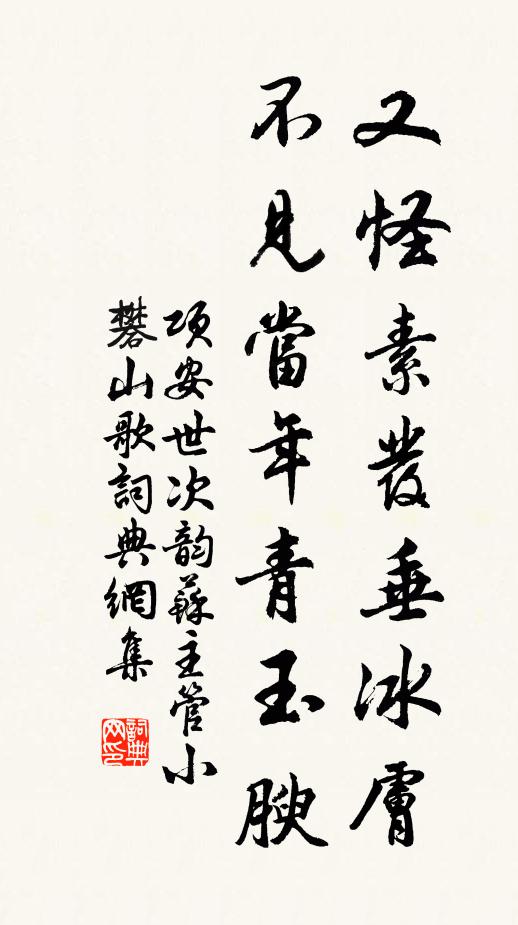 又怪素發垂冰膚
不見當年青玉腴
項安世次韻蘇主管小
礬山歌詞典網集
詞典
网印